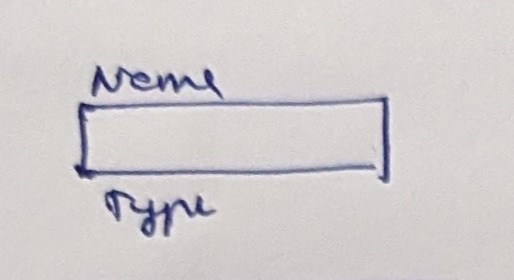 Name
Type